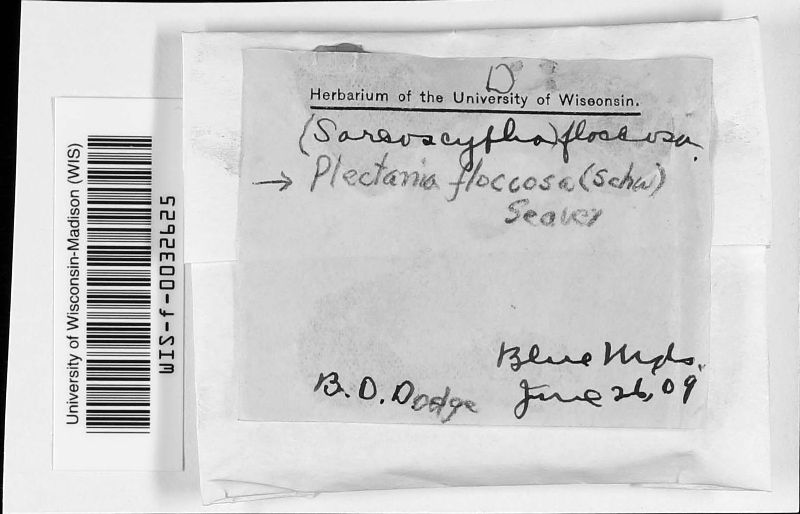 D
Herbarium of the University of Wisconsin.
(Sarcoscypha) floccosa.
→ Plectania floccosa (Schw)
Seaver
Blue Mds.
B. O. Dodge
June 26, 09
University of Wisconsin-Madison (WIS)
WIS-f-0032625